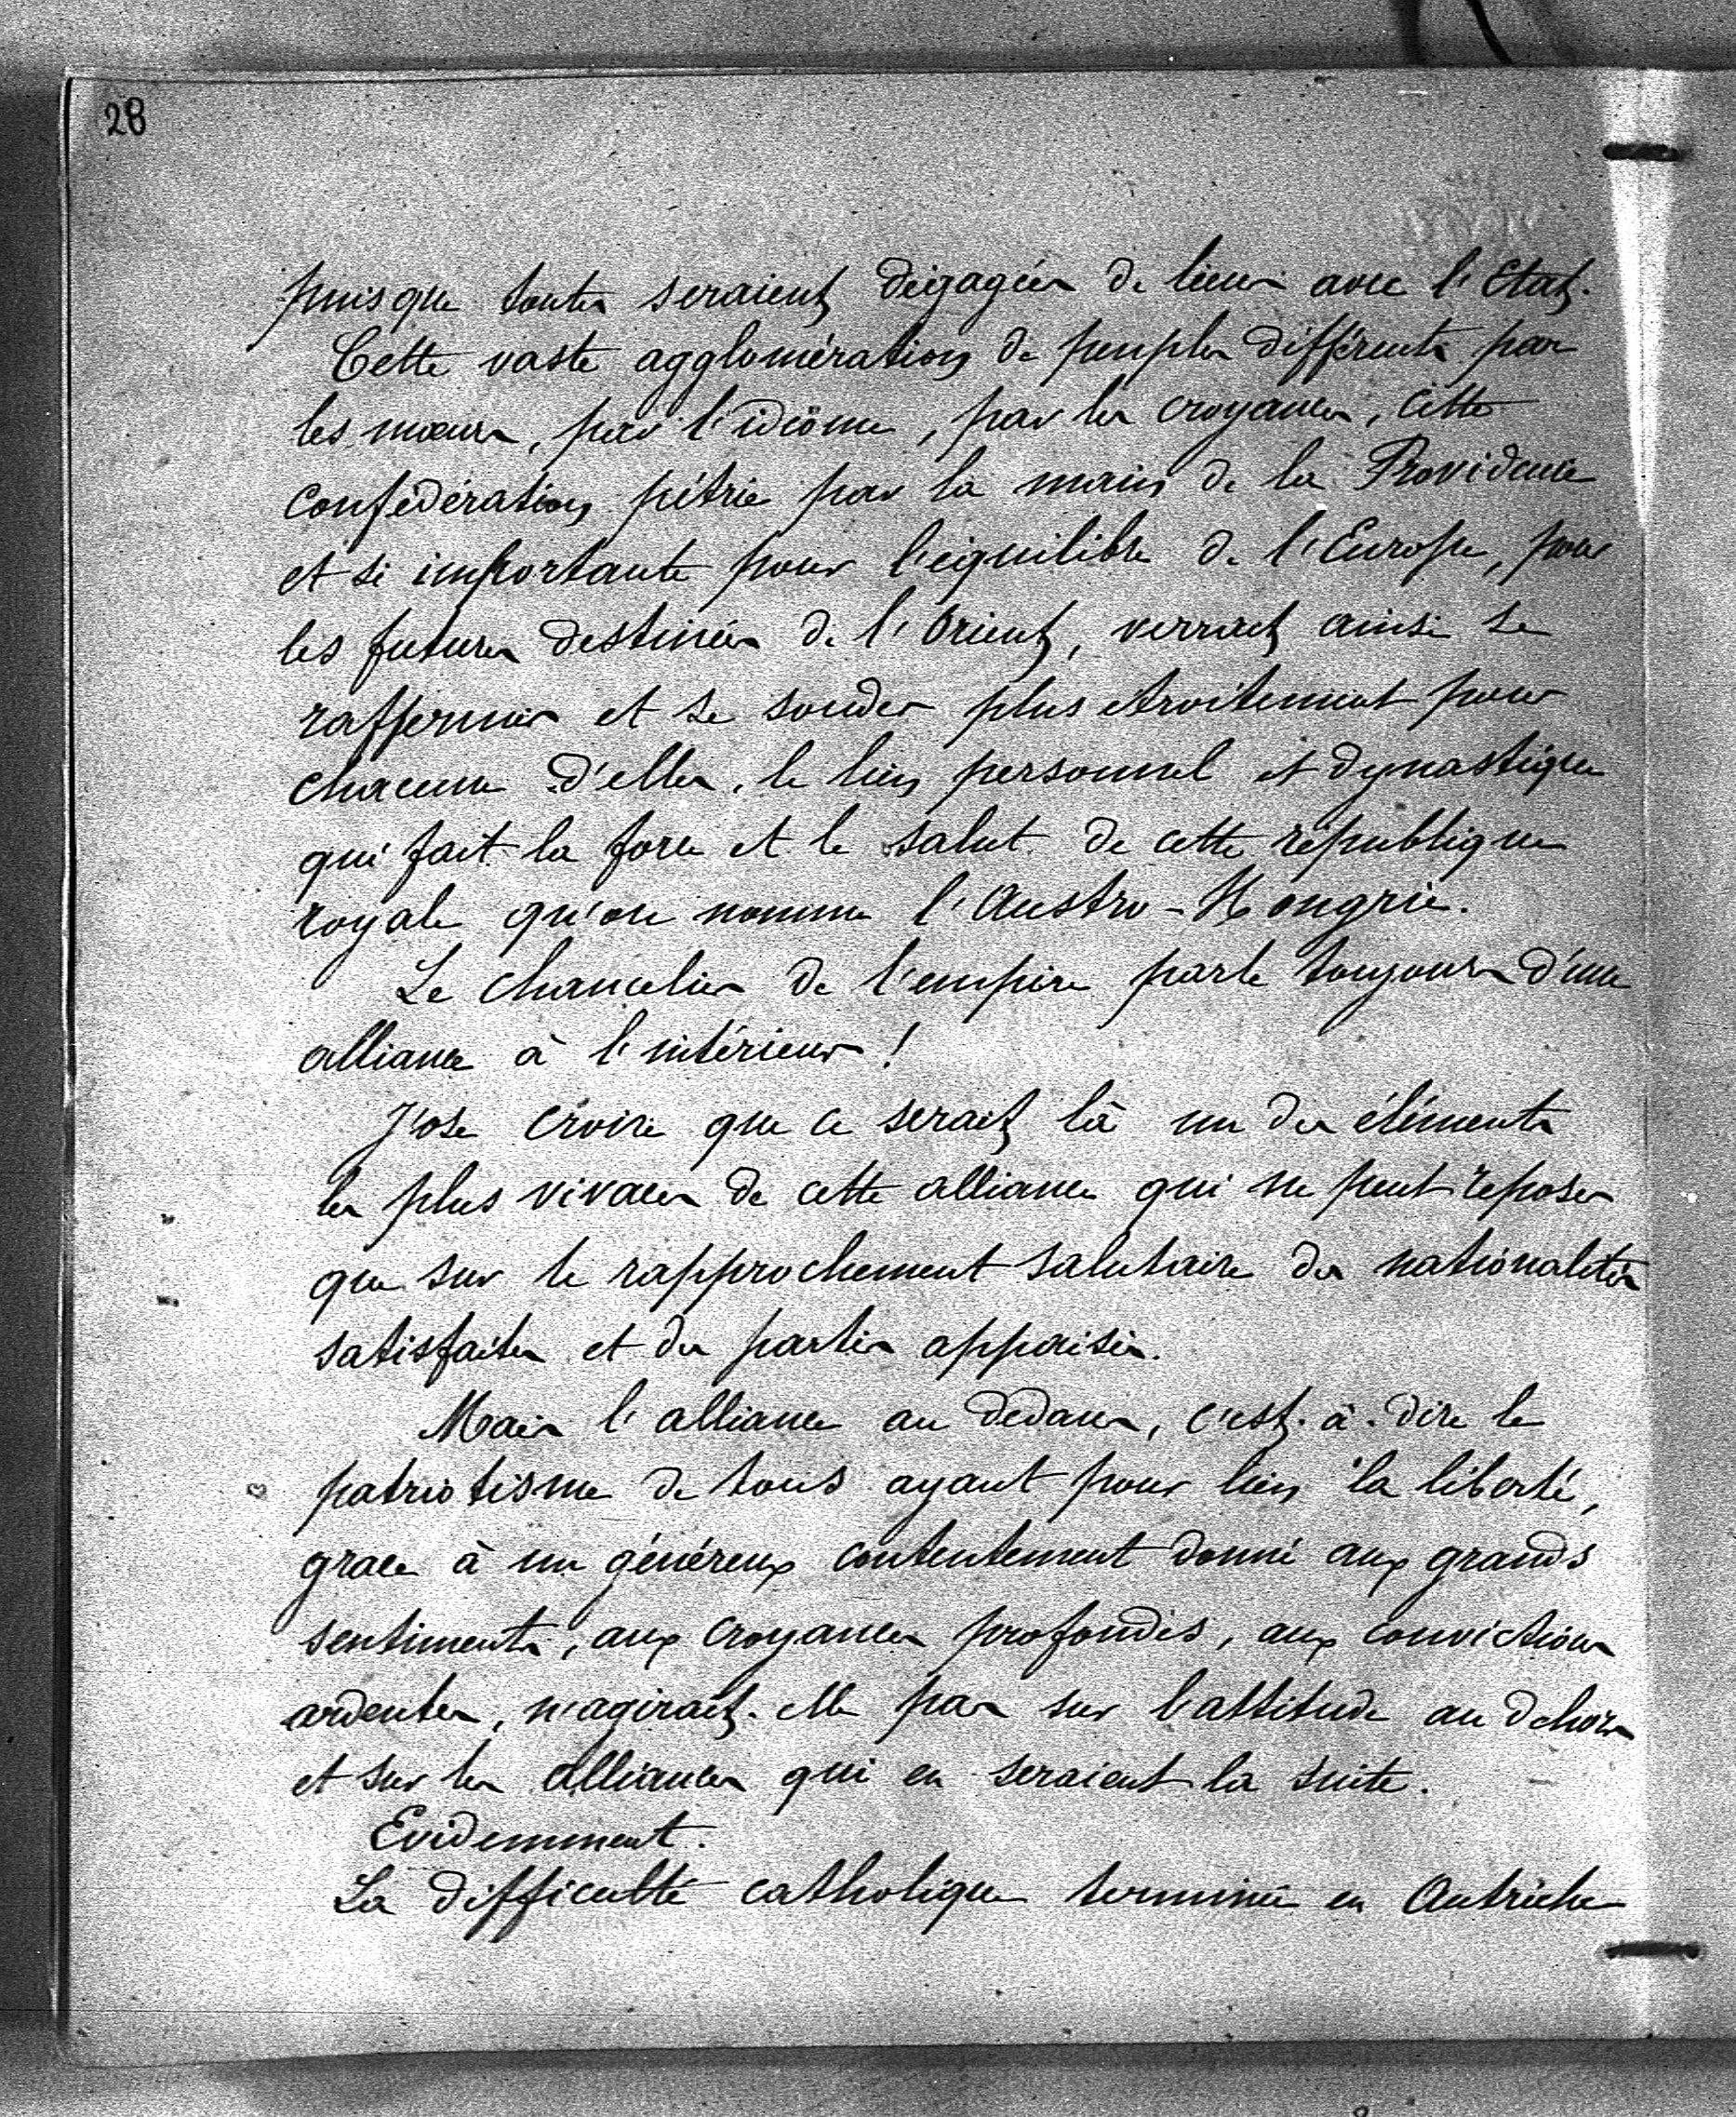 28
puisque toutes seraient dégagées de liens avec l'Etat.
Cette vaste agglomération de peuples différents par
les mœurs, par l'idiôme, par les croyances, cette
confédération pétrie par la main de la Providence
et si importante pour l'équilibre de l'Europe, pour
les futures destinées de l'Orient, verrait ainsi se
raffermir et se souder plus étroitement pour
chacune d'elles, le lien personnel et dynastique
qui fait la force et le salut de cette république
royale qu'on nomme l'Austro-Hongrie.
Le chancelier de l'empire parle toujours d'une
alliance à l'intérieur !
J'ose croire que ce serait là un des éléments
les plus vivaces de cette alliance qui ne peut reposer
que sur le rapprochement salutaire des nationalités
satisfaites et des partis appaisés.
Mais l'alliance au dedans, c'est-à-dire le
patriotisme de tous ayant pour lien la liberté,
grace à un généreux contentement donné aux grands
sentiments, aux croyances profondes, aux convictions
ardentes, n'agirait-elle pas sur l'attitude au dehors
et sur les alliances qui en seraient la suite.
Evidemment.
La difficulté catholique terminée en Autriche